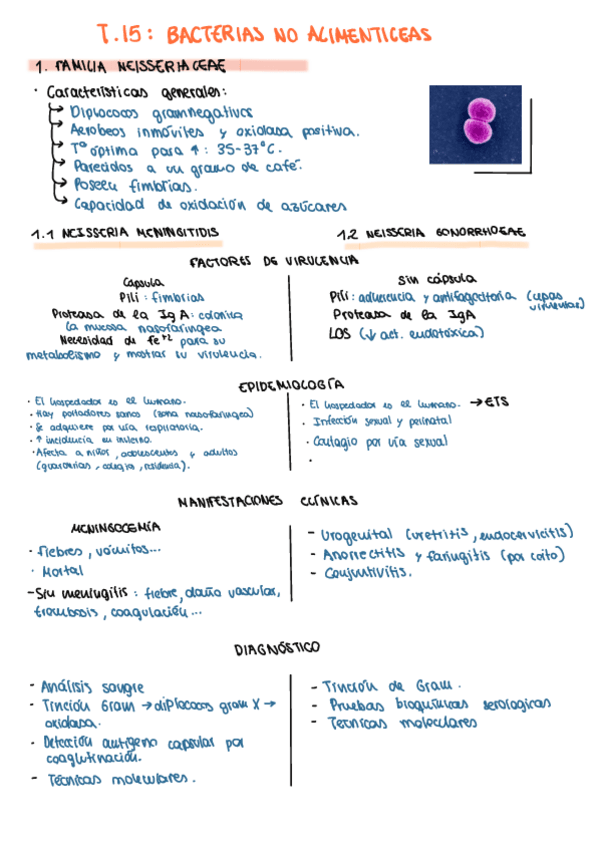 T.15: BACTERIAS NO ALIMENTICEAS
1. FAMILIA NEISSERIACEAE
· Características generales:
Diplococos gramnegativos
Aerobeos inmóviles y oxidasa positiva.
Tª óptima para ↑: 35-37°C.
Parecidos a un grano de café.
Poseen fimbrias.
Capacidad de oxidación de azúcares
1.1 NEISSERIA MENINGITIDIS
1.2 NEISSERIA GONORRHOEAE
FACTORES DE VIRULENCIA
Cápsula
Pili: fimbrias
Proteasa de la IgA: coloniza
la mucosa nasofaríngea
Necesidad de Fe+2 para su
metabolismo y mostrar su virulencia.
Sin cápsula
Pili: adherencia y antifagocitaria (cepas
virulentas)
Proteasa de la IgA
LOS (↓ act. endotóxica)
EPIDEMIOLOGÍA
· El hospedador es el humano.
· Hay portadores sanos (zona nasofaríngea)
· Se adquiere por vía respiratoria.
· ↑ incidencia en invierno.
· Afecta a niños, adolescentes y adultos
(guarderías, colegio, residencia).
· El hospedador es el humano. → ETS
· Infección sexual y perinatal
· Contagio por vía sexual
·
MANIFESTACIONES CLÍNICAS
MENINGOCEMÍA
· Fiebres, vómitos...
· Mortal
- Sin meningitis: fiebre, daño vascular,
trombosis, coagulación...
- Urogenital (uretritis, endocervicitis)
- Anorrectitis y faringitis (por coito)
- Conjuntivitis.
DIAGNÓSTICO
- Análisis sangre
- Tinción Gram → diplococos gram X →
oxidasa.
- Detección antígeno capsular por
coaglutinación.
- Técnicas moleculares.
- Tinción de Gram.
- Pruebas bioquímicas serologicas
- Tecnicas moleculares